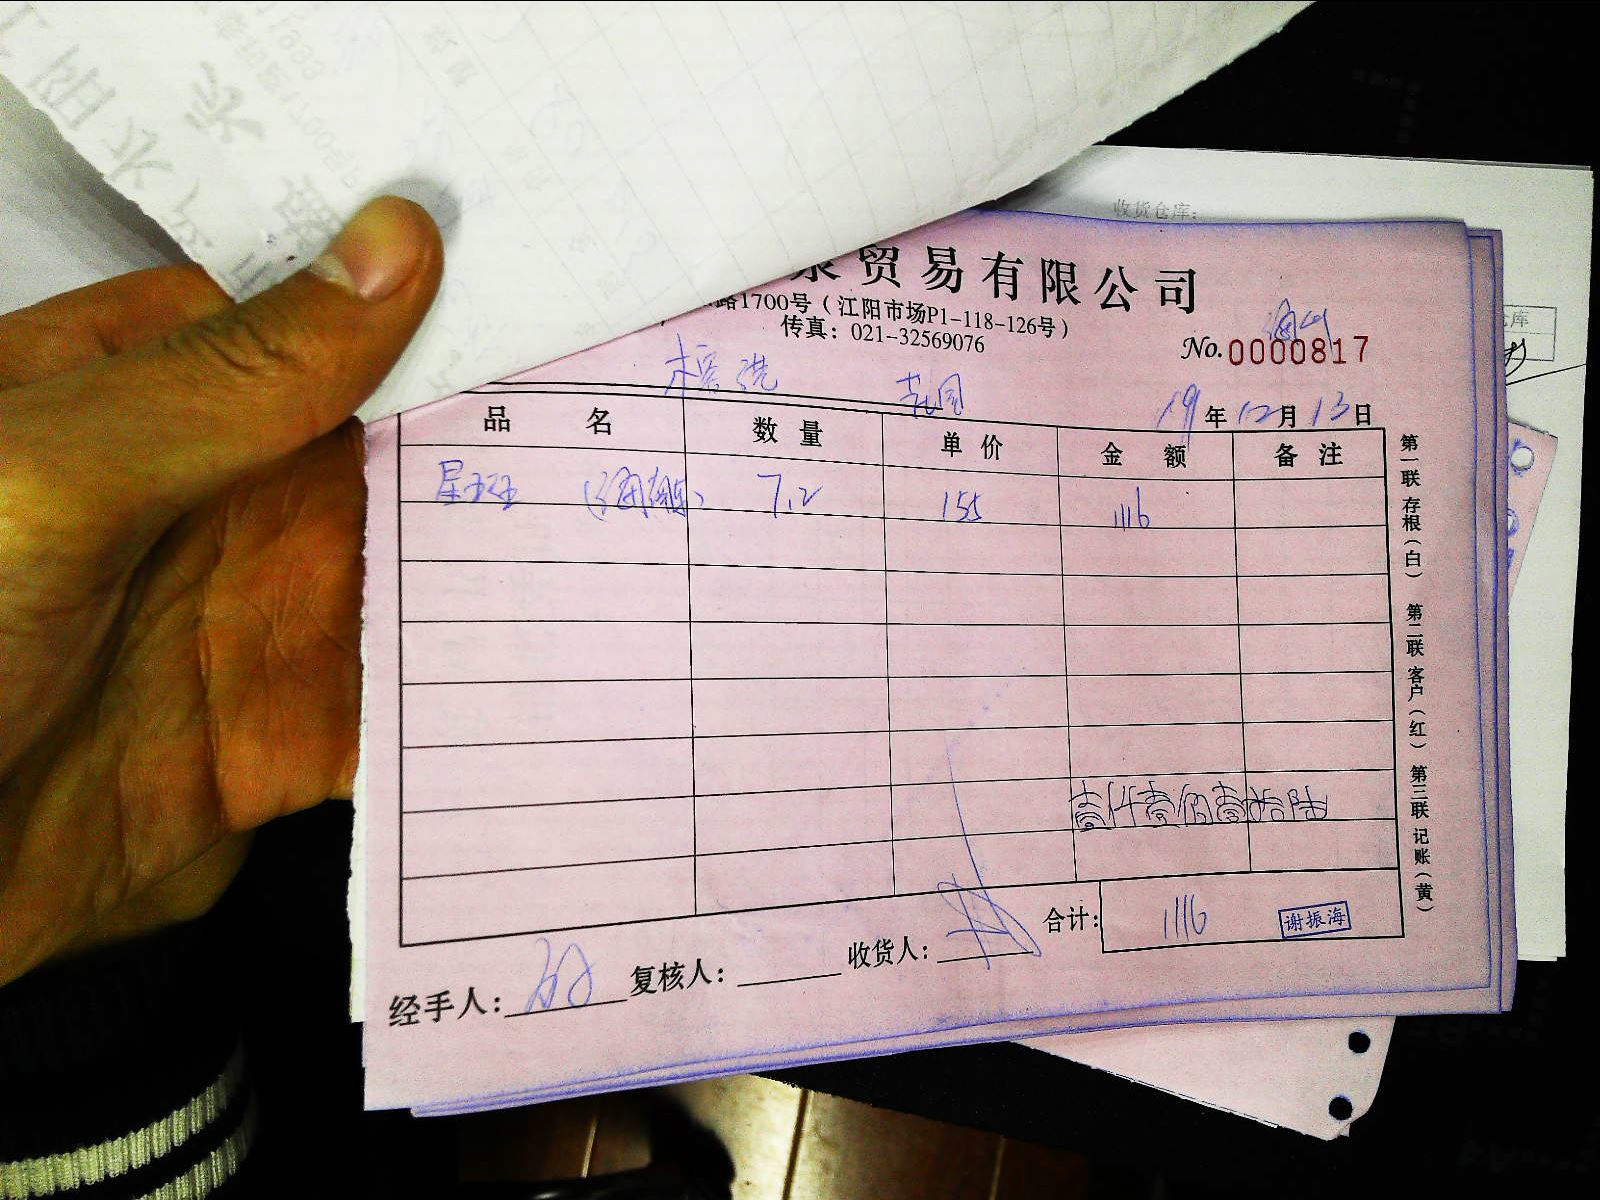 收货仓库:
贸易有限公司
路1700号（江阳市场P1-118-126号）
传真：021-32569076
No. 0000817
19年12月13日
品名 数量 单价 金额 备注
星斑 7.2 155 1116
壹仟壹佰壹拾陆
合计: 1116 谢振海
经手人: 复核人: 收货人:
第一联 存根（白） 第二联 客户（红） 第三联 记账（黄）